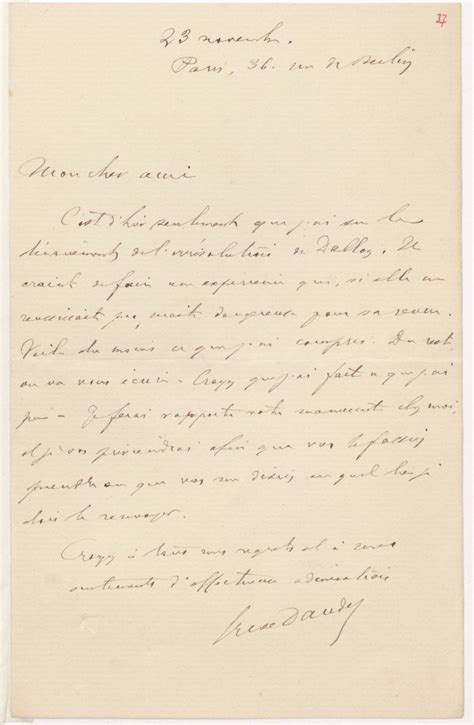 17
23 novembre.
Paris, 36. rue de Berlin
Mon cher ami
C'est d'hier seulement que j'ai su le
dénouement de l'irrésolution de Dalloz. Il
craint de faire une expérience qui, si elle ne
réussissait pas, serait dangereuse pour sa revue.
Voilà du moins ce que j'ai compris. Du reste,
on va vous écrire. Croyez que j'ai fait ce que j'ai
pu. Je ferai rapporter votre manuscrit chez moi,
et je vous préviendrai afin que vous le fassiez
prendre ou que vous me disiez en quel lieu je
dois le renvoyer.
Croyez à tous mes regrets et à mes
sentiments d'affectueuse admiration
Daudet